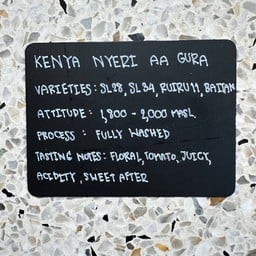 KENYA NYERI AA GURA
VARIETIES: SL28, SL34, RUIRU 11, BATIAN
ATTITUDE : 1,800 - 2,000 MASL
PROCESS : FULLY WASHED
TASTING NOTES: FLORAL, TOMATO, JUICY,
ACIDITY, SWEET AFTER